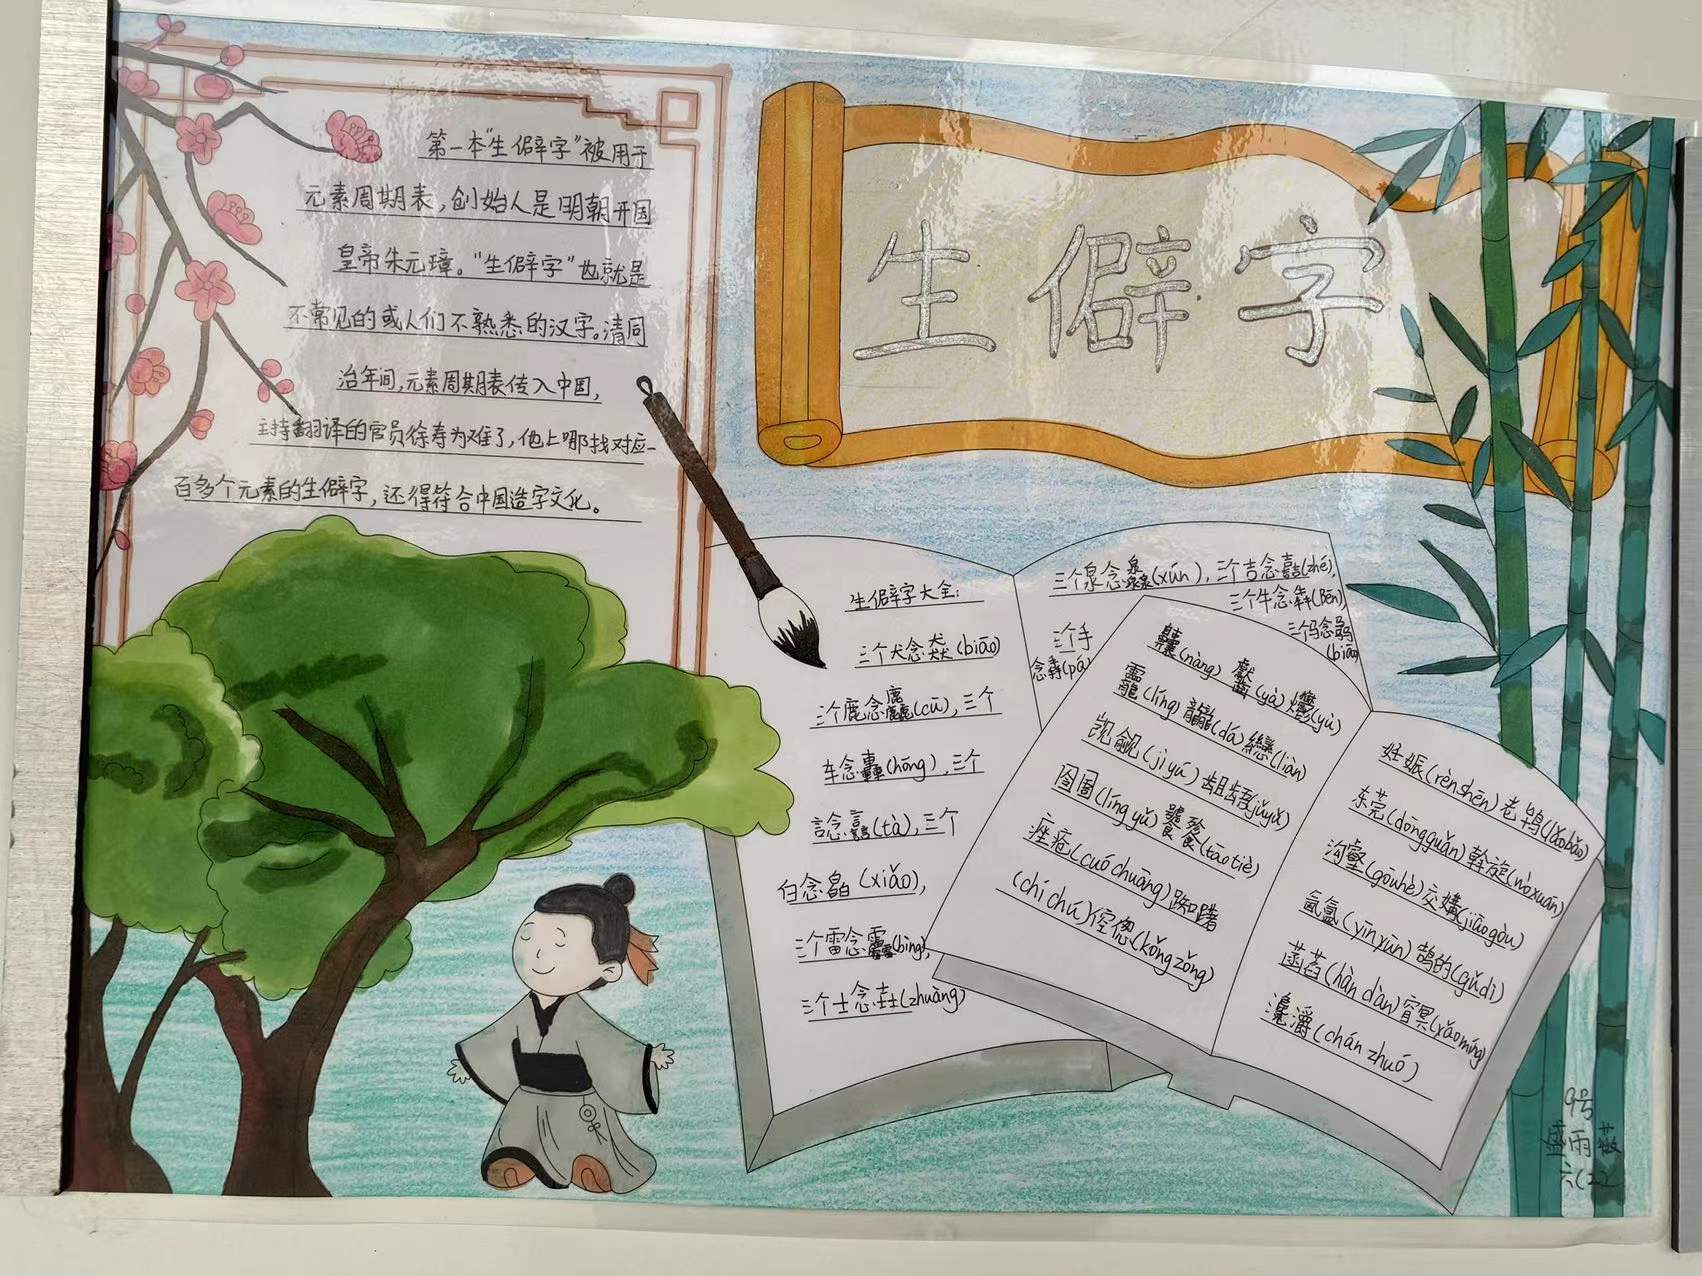 生僻字
第一本“生僻字”被用于
元素周期表,创始人是明朝开国
皇帝朱元璋。“生僻字”也就是
不常见的或人们不熟悉的汉字。清同
治年间,元素周期表传入中国,
主持翻译的官员徐寿为难了,他上哪找对应一
百多个元素的生僻字,还得符合中国造字文化。
生僻字大全:
三个犬念猋(biāo)
三个鹿念麤(cū),三个
车念轟(hōng),三个
言念譶(tà),三个
白念皛(xiǎo),
三个雷念靐(bìng),
三个士念壵(zhuàng)
三个泉念灥(xún),三个吉念嚞(zhé),
三个牛念犇(Bēn),
三个手
念掱(pá)
三个马念骉
(biāo)
齉(nàng) (yà)爩(yù)
龗(líng)龘(dá)戀(liàn)
觊觎(jì yú)龃龉(jǔyǔ)
囹圄(líng yǔ)饕餮(tāo tiè)
痤疮(cuó chuāng)踟躇
(chí chú)倥偬(kǒng zǒng)
妊娠(rèn shēn)老鸨(lǎo bǎo)
东莞(dōng guǎn)斡旋(wò xuán)
沟壑(gōu hè)交媾(jiāo gòu)
氤氲(yīn yūn)鹄的(gǔ dì)
菡萏(hàn dàn)宵冥(xiāo míng)
瀺灂(chán zhuó)
9号
盛雨薇
六(2)